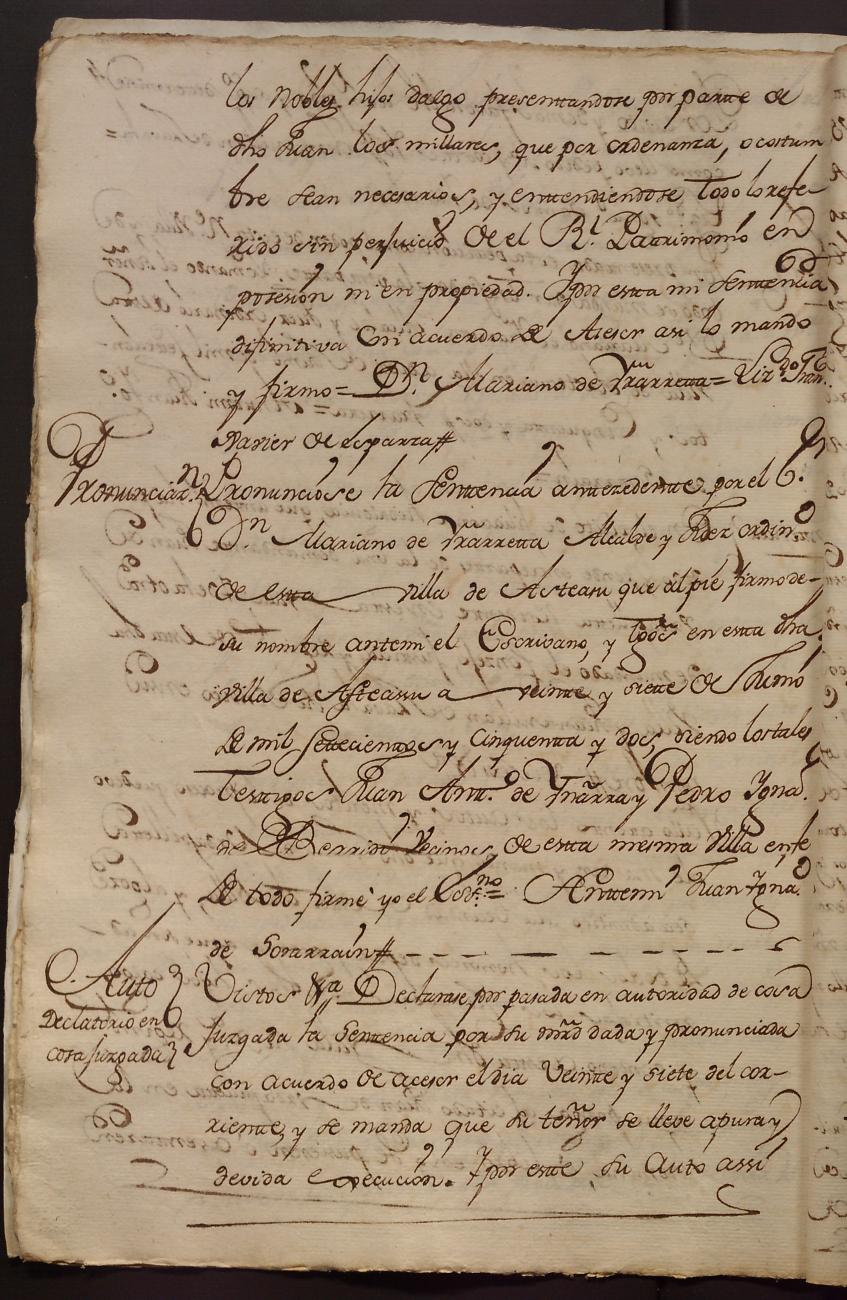 los nobles hijos dalgo presenttandose por partte de
dho Juan los millares, que por ordenanza, o costum
bre sean necesarios, y enttendiendose todo lo refe
rido sin perjuicio de el Rl. Patrimonio en
posesion ni en propiedad. Y por estta mi Senttencia
difinitiva con acuerdo de Asesor asi lo mando
y firmo = Dn. Mariano de Yrarretta = Lizdo. Fran.
Xavier de Esparza #
Pronunciazn. Pronunciose la Senttencia anttezedentte por el S.
Dn Mariano de Yrarretta Alcalde y Juez ordino.
de estta villa de Asteasu que al pie firmo de
su nombre antemi el Escrivano, y tgos en estta dha
villa de Asteasu a veintte y siette de Junio
de mil settecienttos y cinquentta y dos, siendo los tales
testtigos Juan Antt.o de Ynarra y Pedro Ygna.
de Vecinos de estta mesma Villa en fe
de todo firmé yo el Esno = Anttemi Juan Ygna.o
de Sorarrain #
Auto
Declatorio en
cosa Juzgada
Vistos &a. Declarase por pasada en autoridad de cosa
Juzgada la Sentencia por su mrd dada y pronunciada
con acuerdo de acesor el dia Veintte y siete del cor-
rientte, y se manda que su tenor se lleve a pura y
devida execucion. Y por este su Auto assi